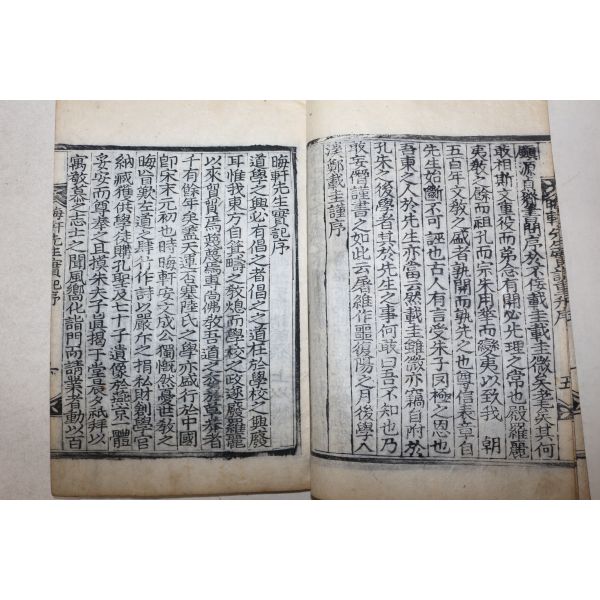 顧源自
筆簡序於不佞載圭載圭微矣老矣其何
敢相斯文重役而第念有開必先理之常也
羅麗
之餘而祖孔而宗朱用華而變夷以致我 朝
五百年文敎之盛者孰開而孰先之也尊信表章自
先生始斷不可誣也古人有言受朱子罔極之恩也
吾東之人於先生亦當云然載圭雖微亦竊自附於
孔朱之後學者其於先生之事何敢曰吾不知也乃
敢安僭謹書之如此云屠維作噩復陽之月後學八
溪鄭載圭謹序
晦軒先生實記序
道學之興必有倡之者倡之之道在於學校之興廢
耳惟我東方自箕疇之敎熄而學校之政遂廢羅麗
以來貿貿焉
專尚佛敎吾道之不絶
者
千有餘年矣蓋天運否塞陸氏之學亦盛行於中國
卽宋末元初也時晦軒安文成公獨慨然憂世敎之
晦盲歎左道之肆行作詩以嚴斥之捐私財創學官
納臧獲供學役購孔聖及七十子遺像於燕京一體
妥安而尊奉之且摸朱夫子眞揭于堂晨夕祇拜以
寓彰慕之志士之聞風嚮化詣門而請業者動以百
晦軒先生實記序